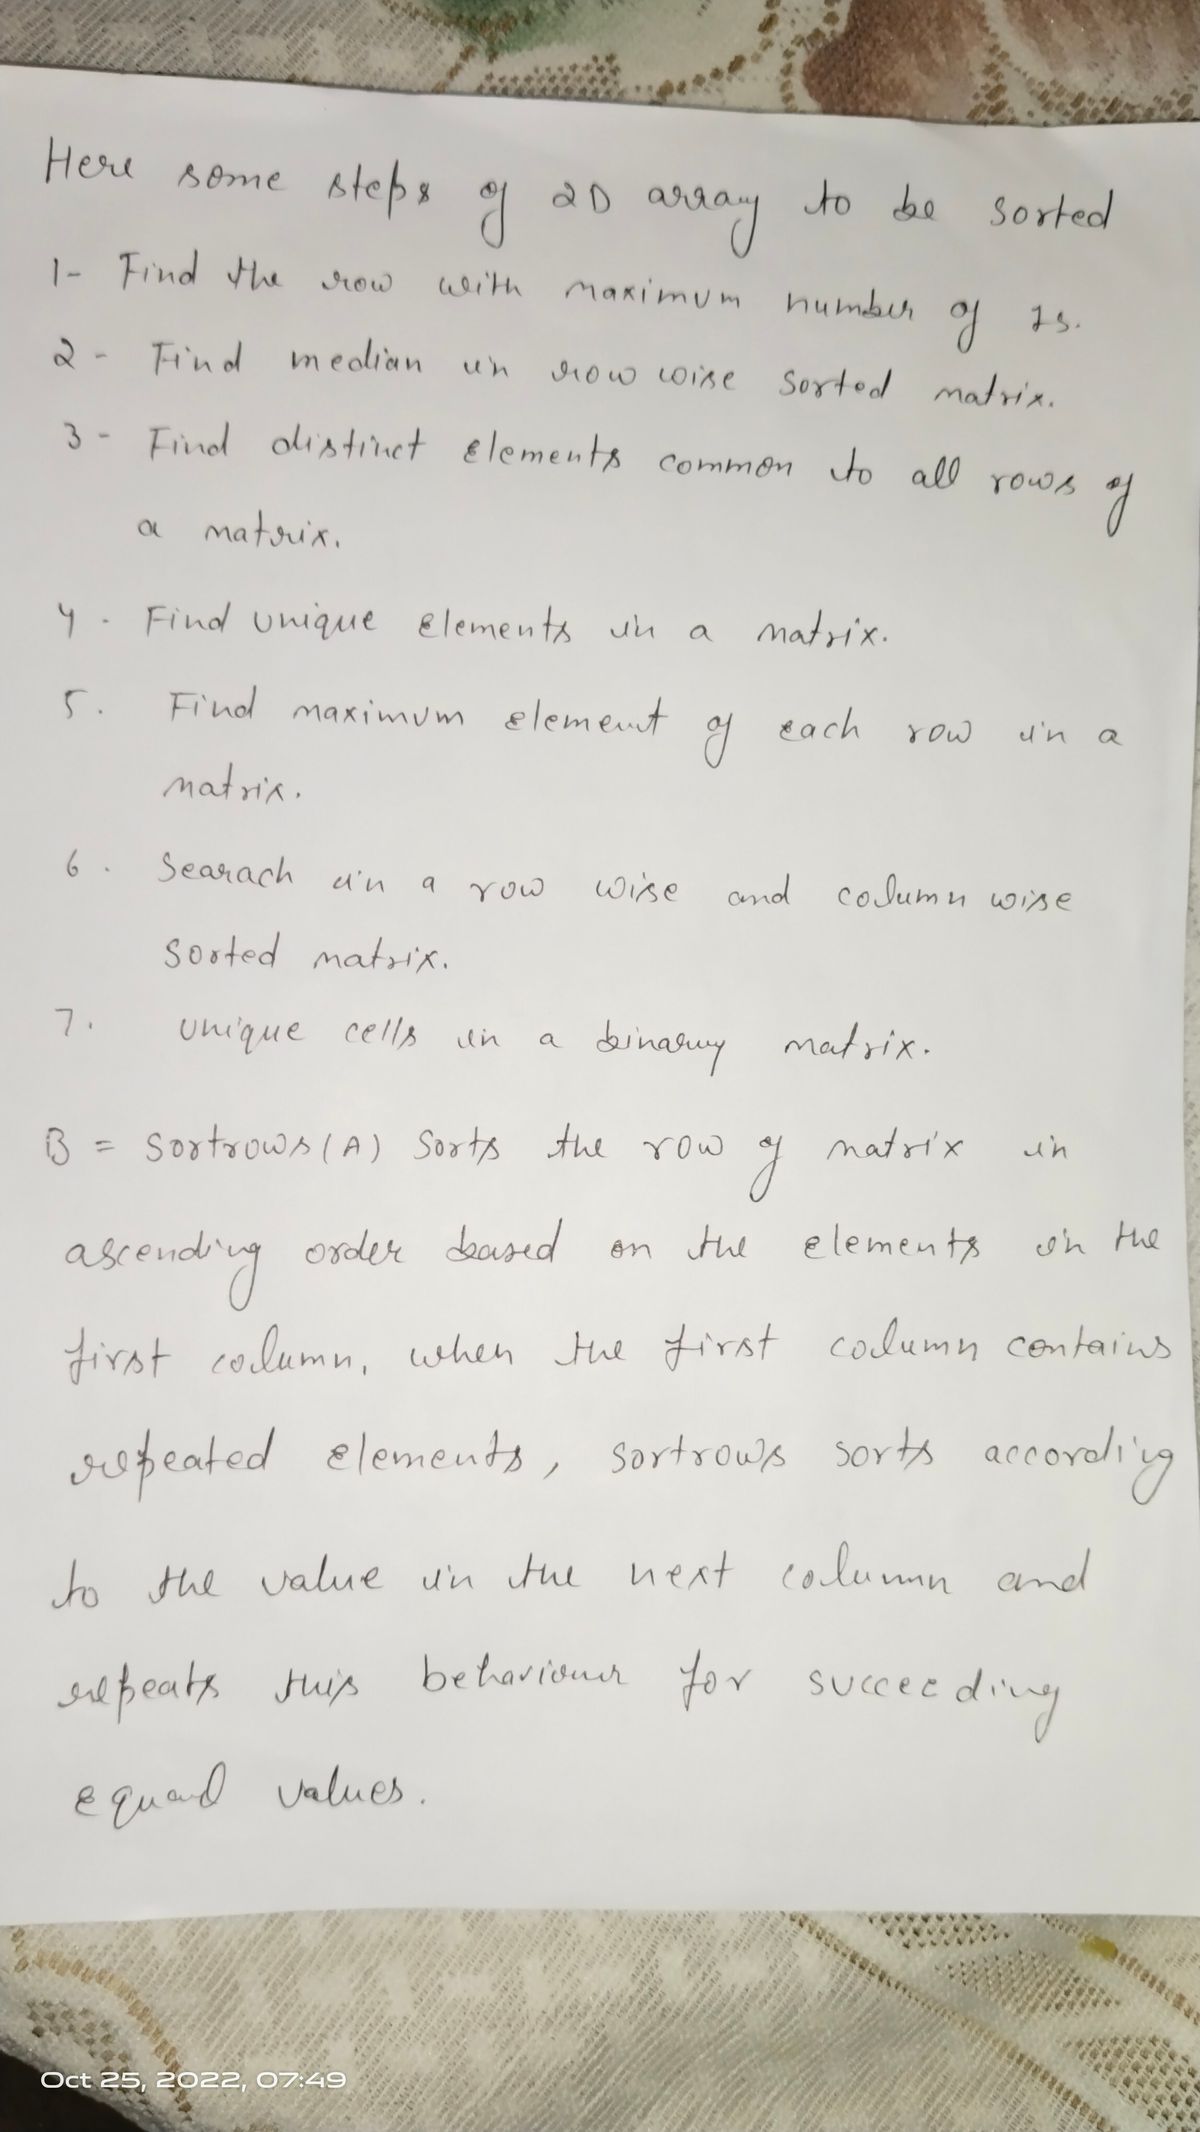 Here some steps of 2D array to be sorted
1- Find the row with maximum number of 1s.
2- Find median in row wise sorted matrix.
3- Find distinct elements common to all rows of
a matrix.
4. Find unique elements in a matrix.
5. Find maximum element of each row in a
matrix.
6. Searach in a row wise and column wise
sorted matrix.
7. unique cells in a binary matrix.
B = sortrows(A) sorts the row of matrix in
ascending order based on the elements in the
first column, when the first column contains
repeated elements, sortrows sorts according
to the value in the next column and
repeats this behaviour for succeeding
equal values.
Oct 25, 2022, 07:49